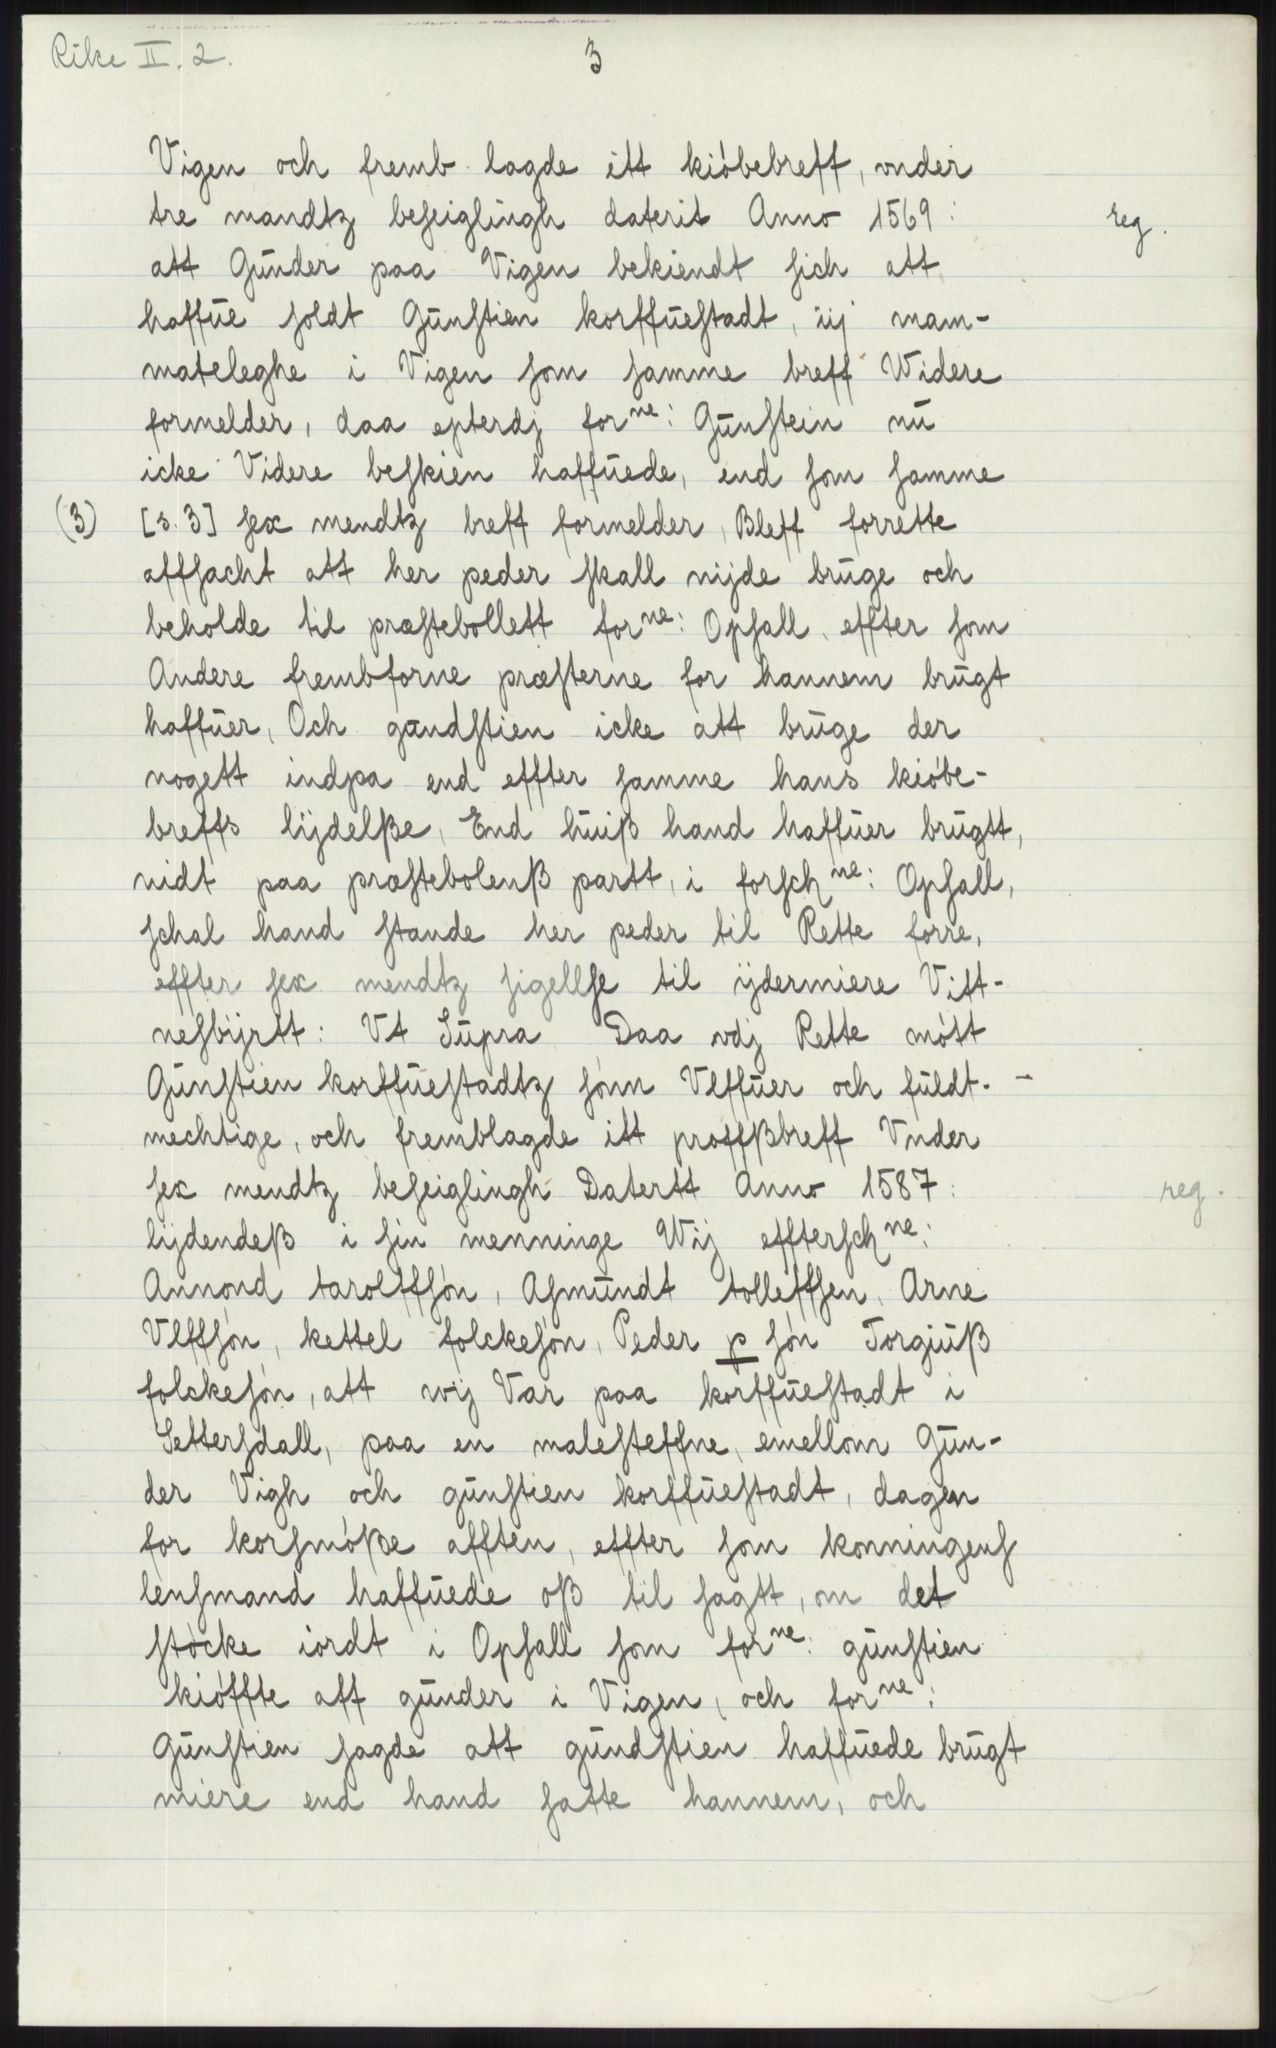 Rike II. 2.
3
Vigen och fremb lagde itt kióbebreff, vnder
tre mandtz beſeiglingh daterit Anno 1569:
reg.
att Gŭnder paa Vigen bekiendt ſich att
haffŭe ſoldt Gŭnſtien korffŭeſtadt, iij mam-
mateleghe i Vigen ſom ſamme breff Widere
formelder, daa epterdj forⁿᵉ: Gŭnſtein nŭ
icke Videre beſkien haffŭede, end ſom ſamme
(3) [s. 3] ſex mendtz breff formelder, Bleff forrette
affſacht att her peder ſkall nijde brŭge och
beholde til præſtebollett forⁿᵉ: Opſall, effter ſom
Andere frembforne præſterne for hannem brŭgt
haffŭer, Och gŭndſtien icke att brŭge der
nogett indpa end effter ſamme hans kióbe-
breffs lijdelße, End hŭiß hand haffŭer brŭgtt,
vidt paa præſtebolenß partt, i forſchⁿᵉ: Opſall,
ſchal hand ſtande her peder til Rette forre,
effter ſex mendtz ſigellſe til ijdermiere Vitt-
neſbijrtt: Vt Sŭpra Daa vdj Rette mótt
Gŭnſtien korffŭeſtadtz ſónn Vlffŭer och fŭldt-
mechtige, och fremblagde itt proffßbreff Vnder
ſex mendtz beſeiglingh Datertt Anno 1587:
reg.
lijdendeß i ſin menninge Wij effterſchⁿᵉ:
Annond tarolffſón, Aſmŭndt tolleffſen, Arne
Vlffſón, kettel folckeſón, Peder p ſón Torgiŭß
folckeſón, att wij Var paa korffŭeſtadt i
Setterſdall, paa en maleſteffne, emellom Gŭn-
der Vigh och gŭnſtien korffŭeſtadt, dagen
for korſmóße afften, effter ſom konningenſ
lenſmand haffŭede oß til ſagtt, om det
ſtócke iordt i Opſall ſom forⁿᵉ: gŭnſtien
kióffte aff gŭnder i Vigen, och forⁿᵉ:
Gŭnſtien ſagde att gŭndſtien haffŭede brŭgt
miere end hand ſatte hannem, och